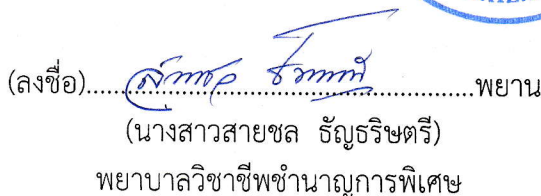 (ลงชื่อ)............................................พยาน
(นางสาวสายชล ธัญธริษตรี)
พยาบาลวิชาชีพชำนาญการพิเศษ